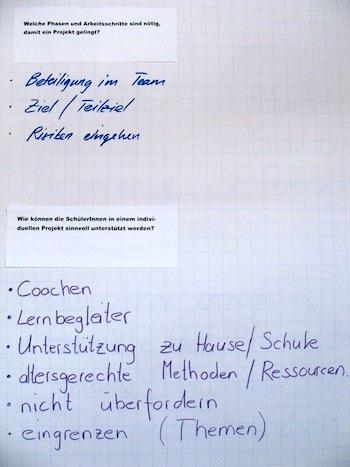 Welche Phasen und Arbeitsschritte sind nötig,
damit ein Projekt gelingt?
· Beteiligung im Team
· Ziel / Teilziel
· Risiken eingehen
Wie können die SchülerInnen in einem indivi-
duellen Projekt sinnvoll unterstützt werden?
· Coachen
· Lernbegleiter
· Unterstützung zu Hause / Schule
· altersgerechte Methoden / Ressourcen.
· nicht überfordern
· eingrenzen (Themen)